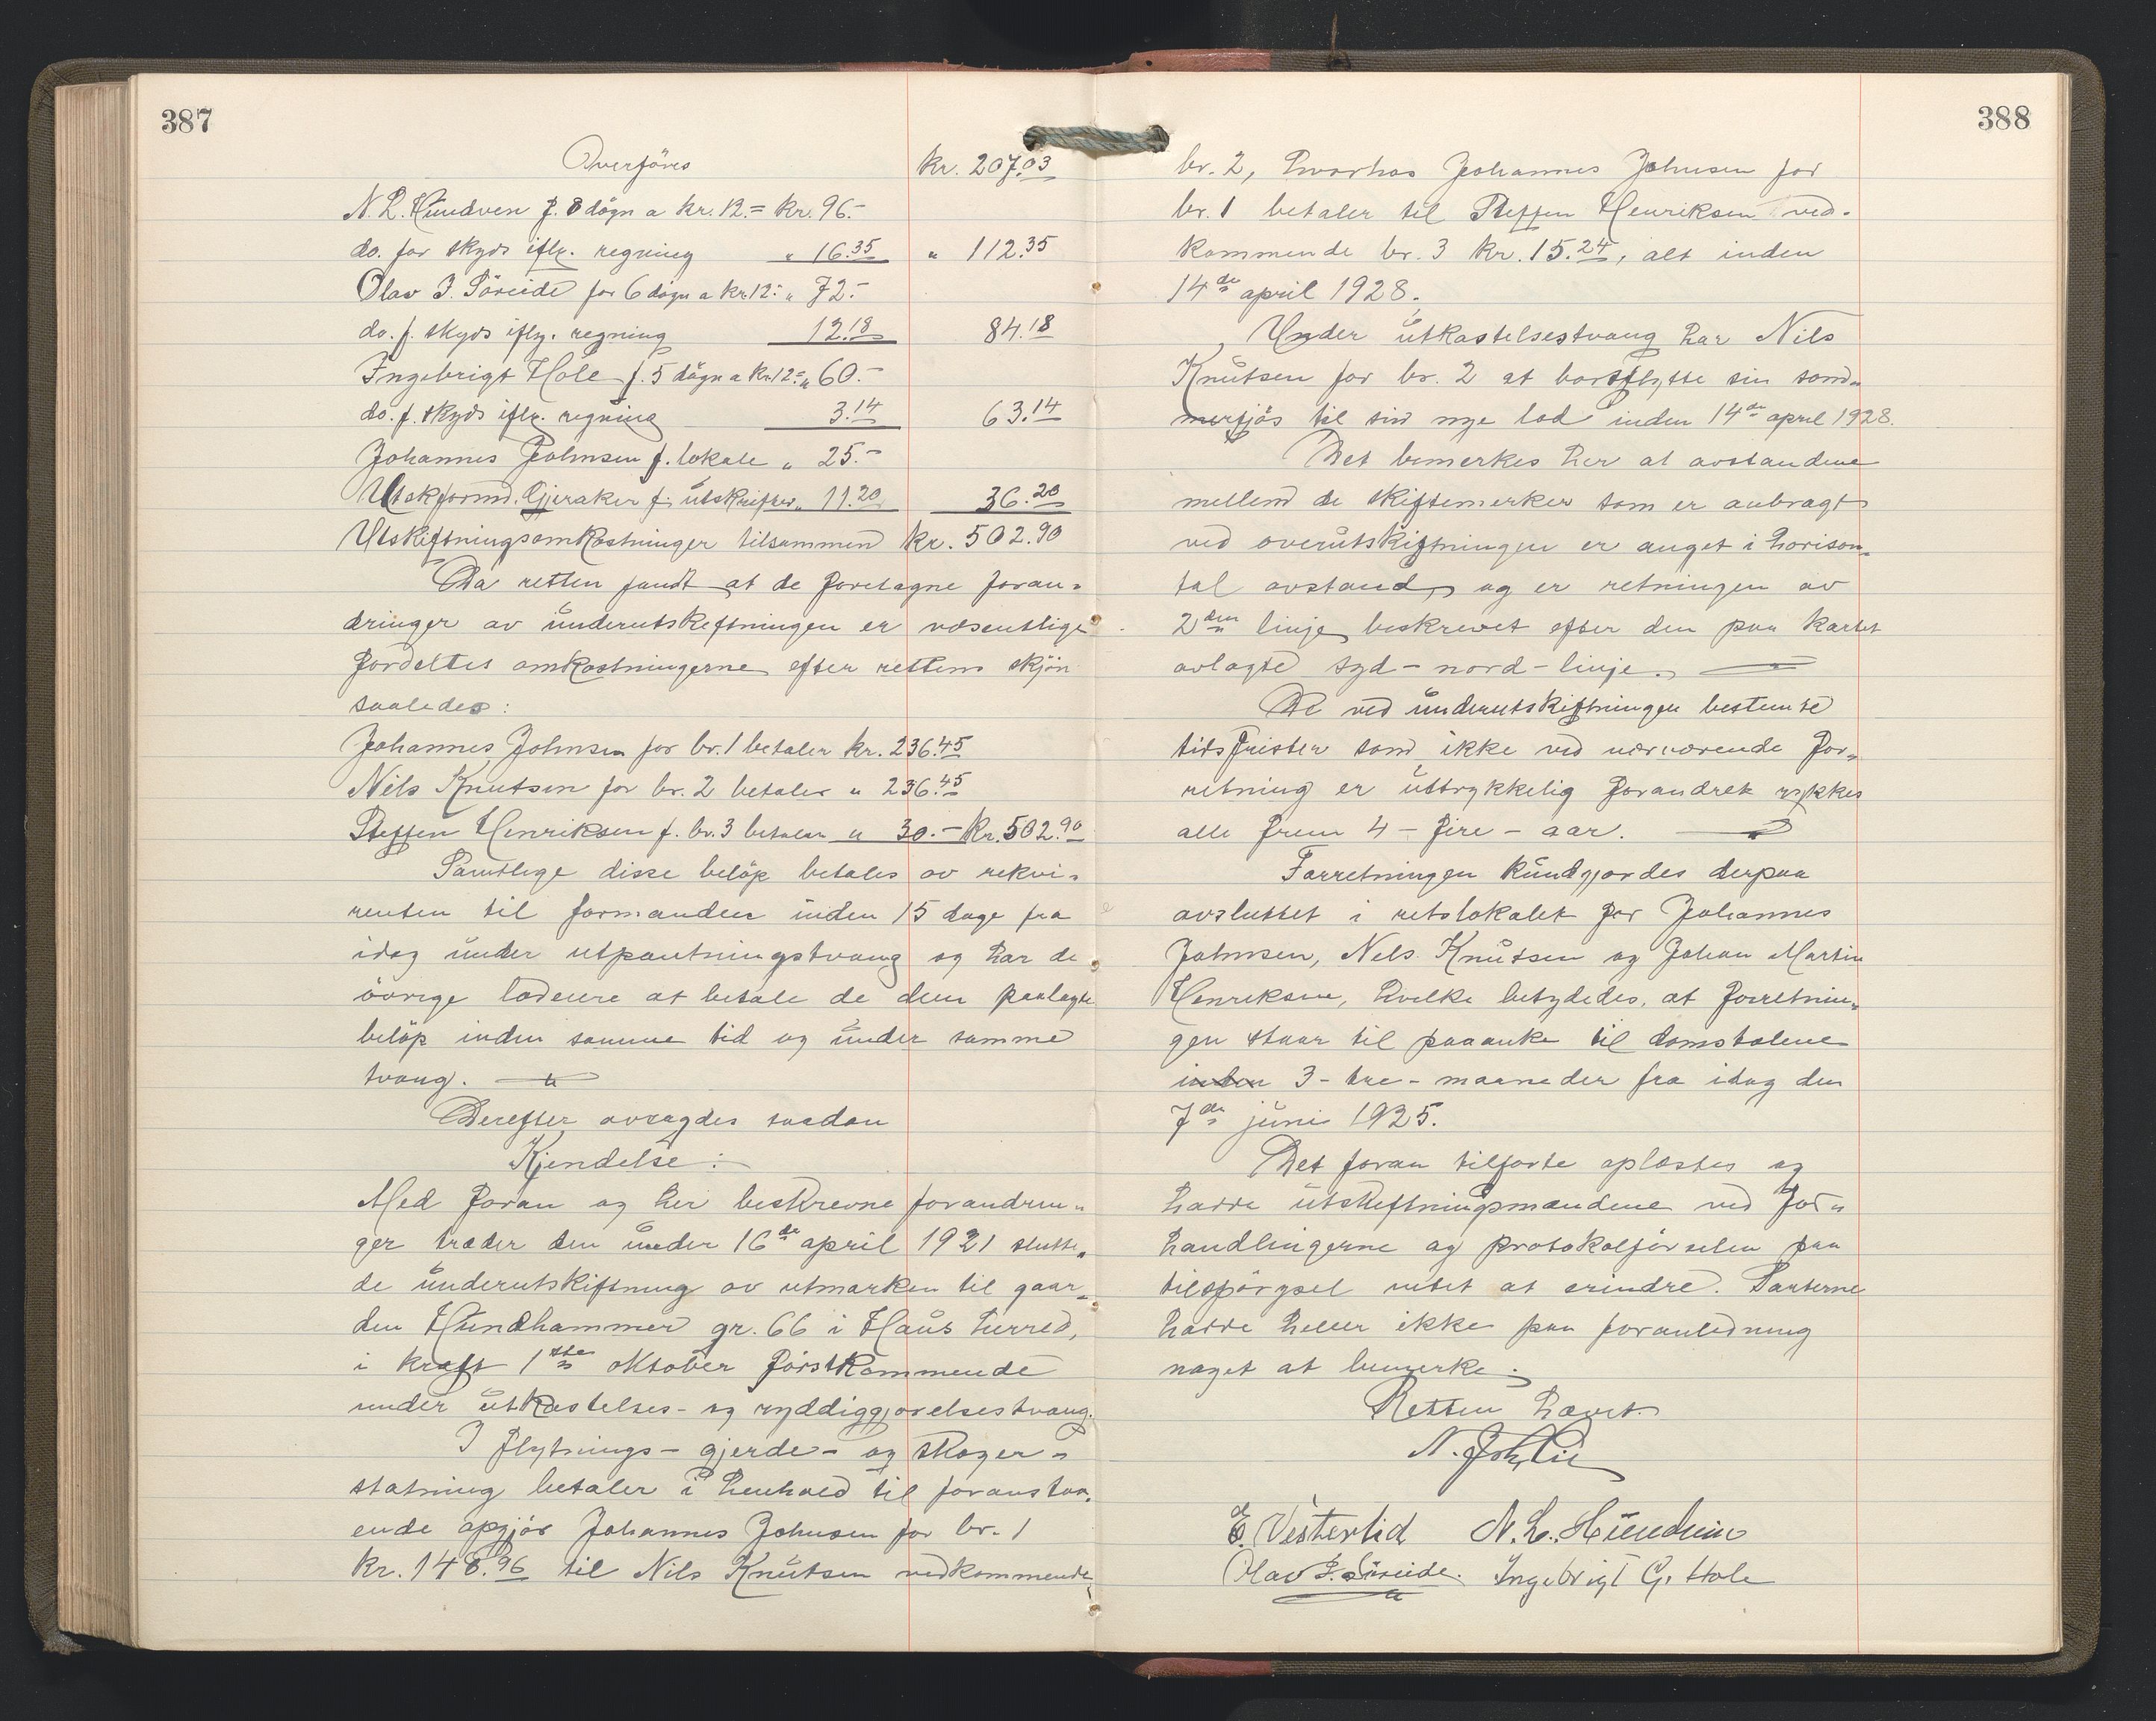 387
Overføres kr. 207.03
N. L. Hundven f. 8 døgn a kr. 12.= kr. 96.-
do. for skyds iflg. regning " 16.35 " 112.35
Olav J. Søreide for 6 døgn a kr. 12.- " 72.-
do. f. skyds iflg. regning 12.18 84.18
Ingebrigt Hole f. 5 døgn a kr. 12.= " 60.-
do. f. skyds iflg. regning 3.14 63.14
Johannes Johnsen f. lokale " 25.-
Utskformd. Gjeraker f. utskrifter " 11.20 36.20
Utskiftningsomkostninger tilsammen kr. 502.90
Da retten fandt at de foretagne foran-
dringer av underutskiftningen er væsentlige
fordeltes omkostningerne efter rettens skjøn
saaledes:
Johannes Johnsen for br. 1 betaler kr. 236.45
Nils Knutsen for br. 2 betaler " 236.45
Steffen Henriksen f. br. 3 betaler " 30.- kr. 502.90
Samtlige disse beløp betales av rekvi-
renten til formanden inden 15 dage fra
idag under utpantningstvang og har de
øvrige lodeiere at betale de dem paalagte
beløp inden samme tid og under samme
tvang.
Derefter avsagdes saadan
Kjendelse:
Med foran og her beskrevne forandrin-
ger træder den under 16de april 1921 slutte-
de underutskiftning av utmarken til gaar-
den Hundhammer gr. 66 i Haus herred,
i kraft 1ste oktober førstkommende
under utkastelses- og ryddiggjørelsestvang.
I flytnings- gjerde- og skoger-
statning betaler i henhold til foranstaa-
ende opgjør Johannes Johnsen for br. 1
kr. 148.96 til Nils Knutsen vedkommende
388
br. 2, hvorhos Johannes Johnsen for
br. 1 betaler til Steffen Henriksen ved-
kommende br. 3 kr. 15.24, alt inden
14de april 1928.
Under utkastelsestvang har Nils
Knutsen for br. 2 at bortflytte sin som-
merfjøs til sin nye lod inden 14de april 1928.
Det bemerkes her at avstandene
mellem de skiftemerker som er anbragt
ved overutskiftningen er anget i horison-
tal avstand, og er retningen av
2den linje beskrevet efter den paa kartet
avlagte syd-nord-linje.
De ved underutskiftningen bestemte
tidsfrister som ikke ved nærværende for-
retning er uttrykkelig forandret rykkes
alle frem 4 - fire - aar.
Forretningen kundgjordes derpaa
avsluttet i retslokalet for Johannes
Johnsen, Nils Knutsen og Johan Martin
Henriksen, hvilke betydedes, at forretnin-
gen staar til paaanke til domstolene
inden 3 - tre - maaneder fra idag den
7de juni 1925.
Det foran tilførte oplæstes og
hadde utskiftningsmændene ved for-
handlingerne og protokolførselen paa
tilspørgsel intet at erindre. Parterne
hadde heller ikke paa foranledning
noget at bemerke.
Retten hævet.
E. Vestertid N. L. Hundven
Olav J. Søreide. Ingebrigt G. Hole